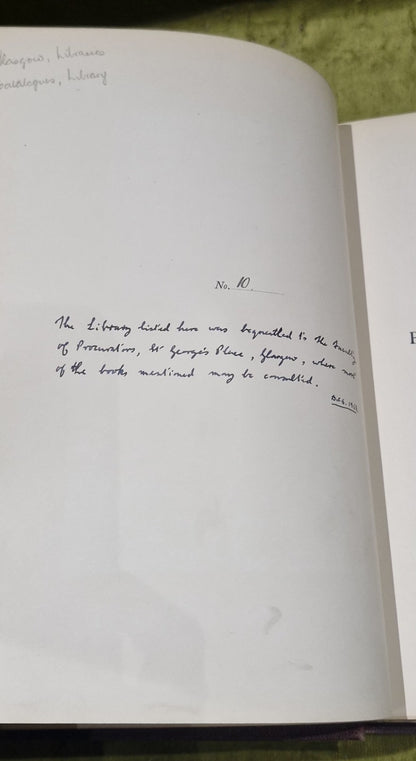 Glasgow, Libraries
Catalogues, Library
No. 10.
The Library listed here was bequeathed to the Faculty
of Procurators, St George's Place, Glasgow, where most
of the books mentioned may be consulted.